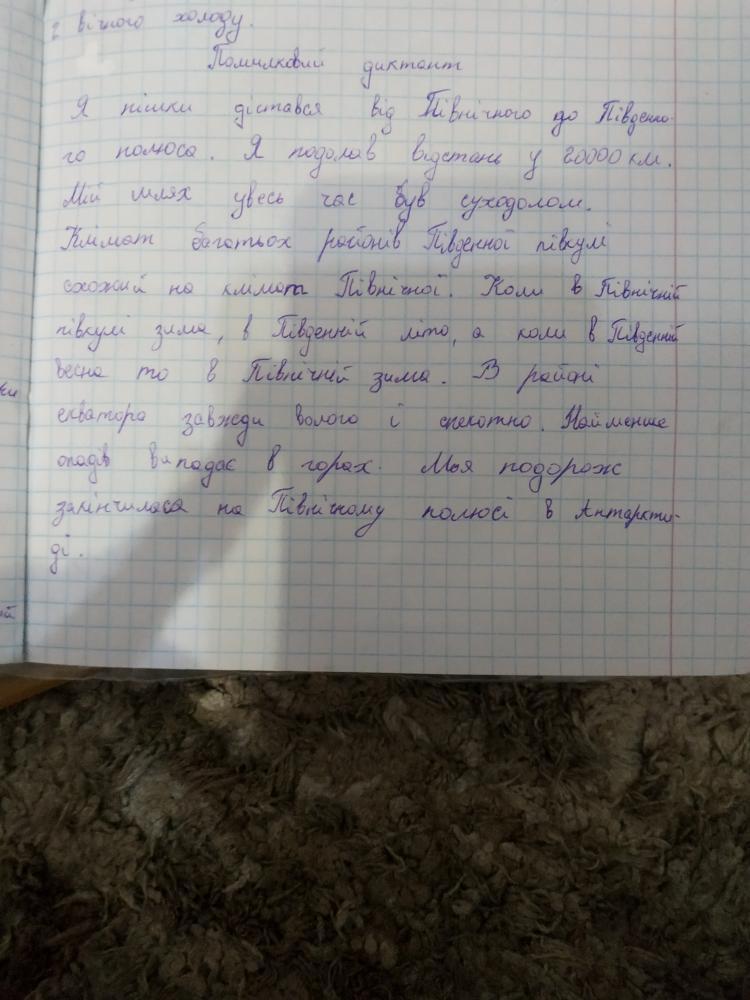 з вічного холоду.
Помилковий диктант
Я пішки дістався від Північного до Південно-
го полюса. Я подолав відстань у 20000 км.
Мій шлях увесь час був суходолом.
Клімат багатьох районів Південної півкулі
схожий на клімат Північної. Коли в Північній
півкулі зима, в Південній літо, а коли в Південній
весна то в Північній зима. В районі
екватора завжди волого і спекотно. Найменше
опадів випадає в горах. Моя подорож
закінчилася на Північному полюсі в Антаркти-
ді.